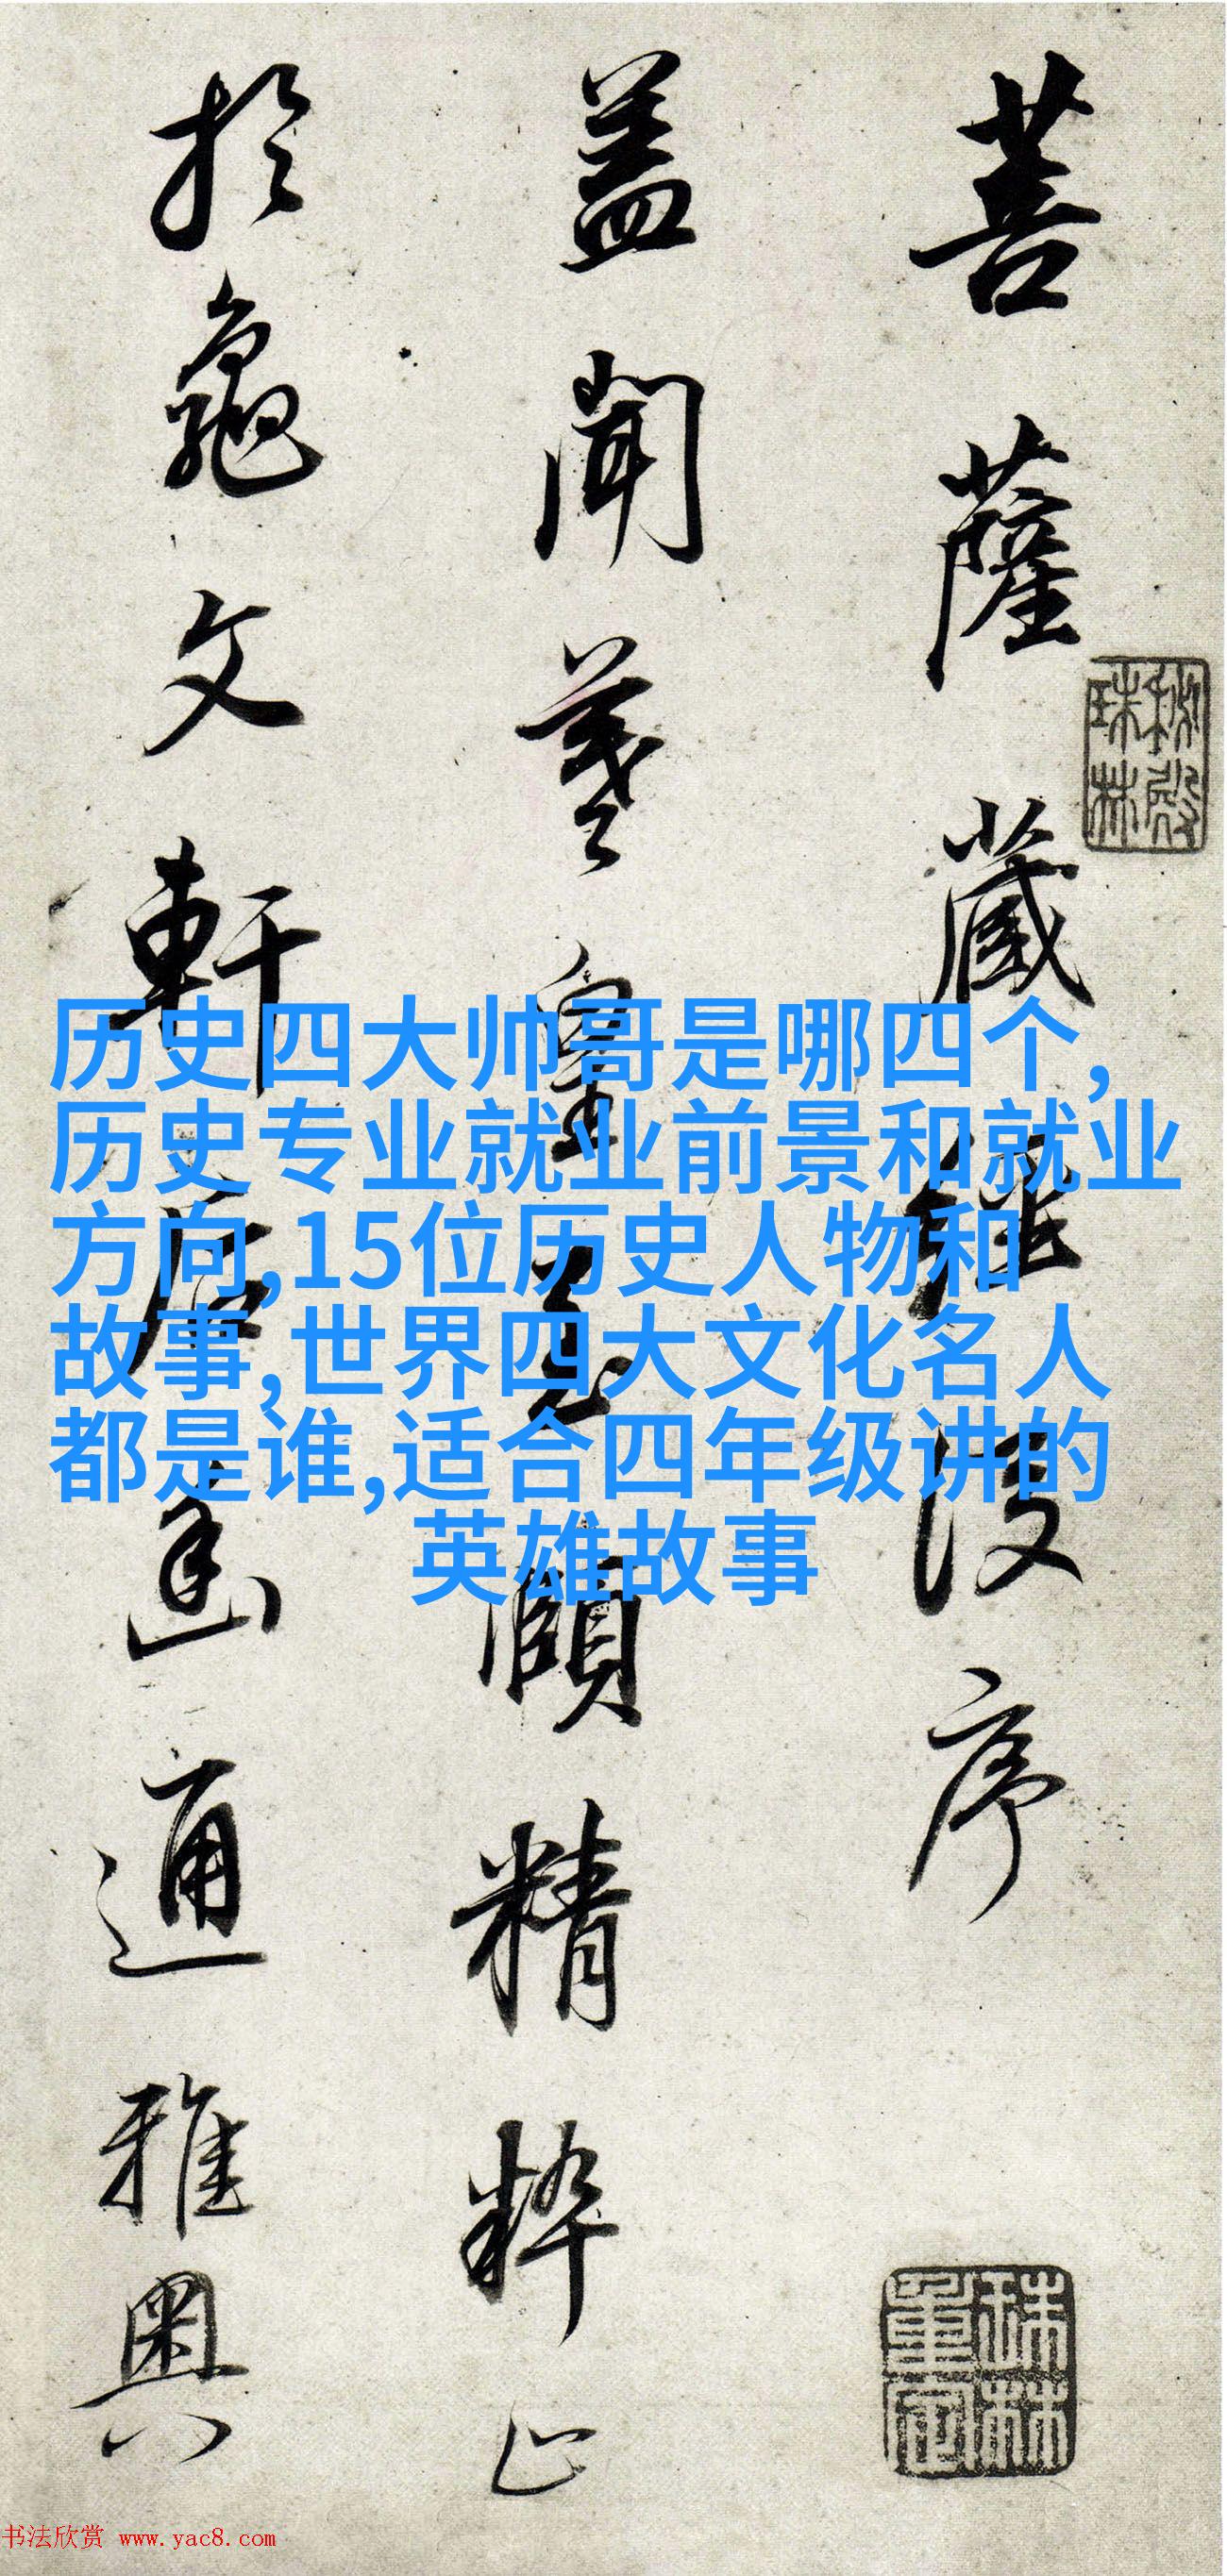 菩薩蔵經後序
盖聞羲皇至賾精粹止
於龜文軒后幽通雅奥
秘殿
珠林
珠林
重定
历史四大帅哥是哪四个,
历史专业就业前景和就业
方向,15位历史人物和
故事,世界四大文化名人
都是谁,适合四年级讲的
英雄故事
书法欣赏 www.yac8.com